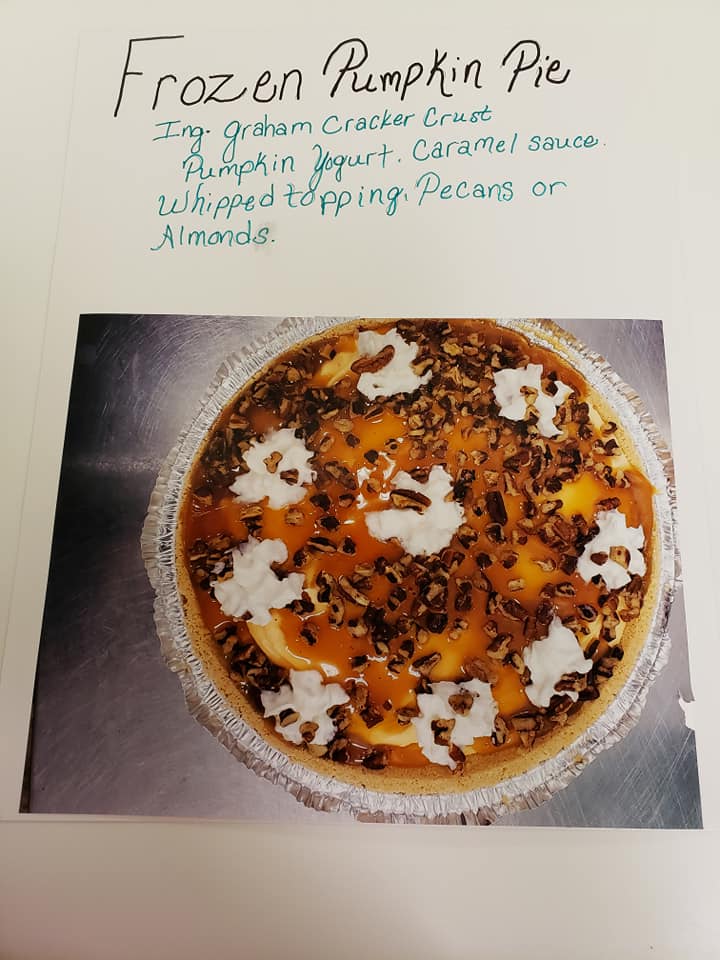 Frozen Pumpkin Pie
Ing. Graham Cracker Crust
Pumpkin Yogurt. Caramel sauce.
Whipped topping, Pecans or
Almonds.